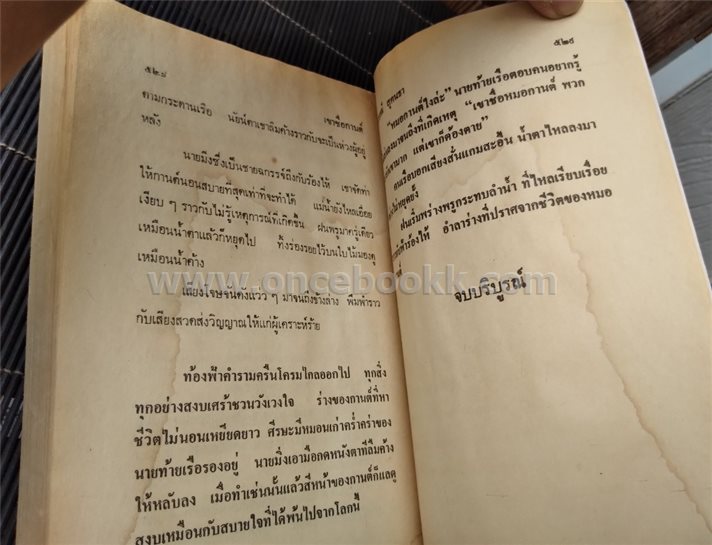 ๕๒๘
ตามกระดานเรือ นัยน์ตาเขาลืมค้างราวกับจะเป็นห่วงผู้อยู่
หลัง
นายมิ่งซึ่งเป็นชายฉกรรจ์ถึงกับร้องไห้ เขาจัดท่า
ให้กานต์นอนสบายที่สุดเท่าที่จะทำได้ แม่น้ำยังไหลเอื่อย
เงียบ ๆ ราวกับไม่รู้เหตุการณ์ที่เกิดขึ้น ฝนพรูมาครู่เดียว
เหมือนน้ำตาแล้วก็หยุดไป ทั้งร่องรอยไว้บนใบไม้มองดู
เหมือนน้ำค้าง
เสียงโจษจันดังแว่ว ๆ มาจนถึงข้างล่าง พึมพำราว
กับเสียงสวดส่งวิญญาณให้แก่ผู้เคราะห์ร้าย
ท้องฟ้าคำรามครืนโครมไกลออกไป ทุกสิ่ง
ทุกอย่างสงบเศร้าชวนวังเวงใจ ร่างของกานต์ที่หา
ชีวิตไม่นอนเหยียดยาว ศีรษะมีหมอนเก่าคร่ำคร่าของ
นายท้ายเรือรองอยู่ นายมิ่งเอามือลดหนังตาที่ลืมค้าง
ให้หลับลง เมื่อทำเช่นนั้นแล้วสีหน้าของกานต์ก็แลดู
สงบเหมือนกับสบายใจที่ได้พ้นไปจากโลกนี้
๕๒๙
สุคนธา
"หมอกานต์ไงล่ะ" นายท้ายเรือตอบคนอยากรู้
ที่เกิดเหตุ "เขาชื่อหมอกานต์ พวก
แต่เขาก็ต้องตาย"
คนเรือบอกเสียงสั่นแกมสะอื้น น้ำตาไหลลงมา
หยุดยั้ง
ฝนเริ่มพร่างพรูกระทบลำน้ำ ที่ไหลเรียบเรื่อย
ร้องไห้ อำลาร่างที่ปราศจากชีวิตของหมอ
จบบริบูรณ์
www.oncebookk.com